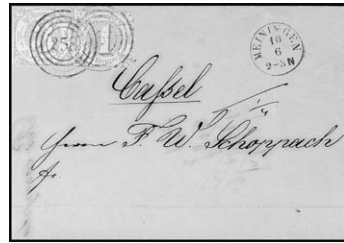 258 1
MEININGEN
10
6
2-3N
Cassel
Herrn F. W. Schoppach